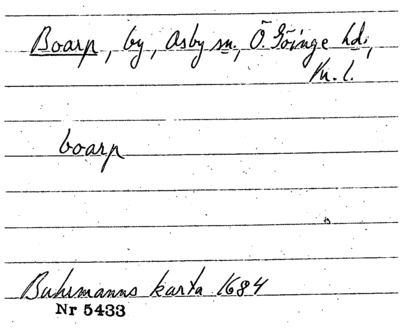 Boarp, by, Asby sn., Ö. Göinge hd.,
Kr. l.
boarp
Buhrmanns karta 1684
Nr 5433